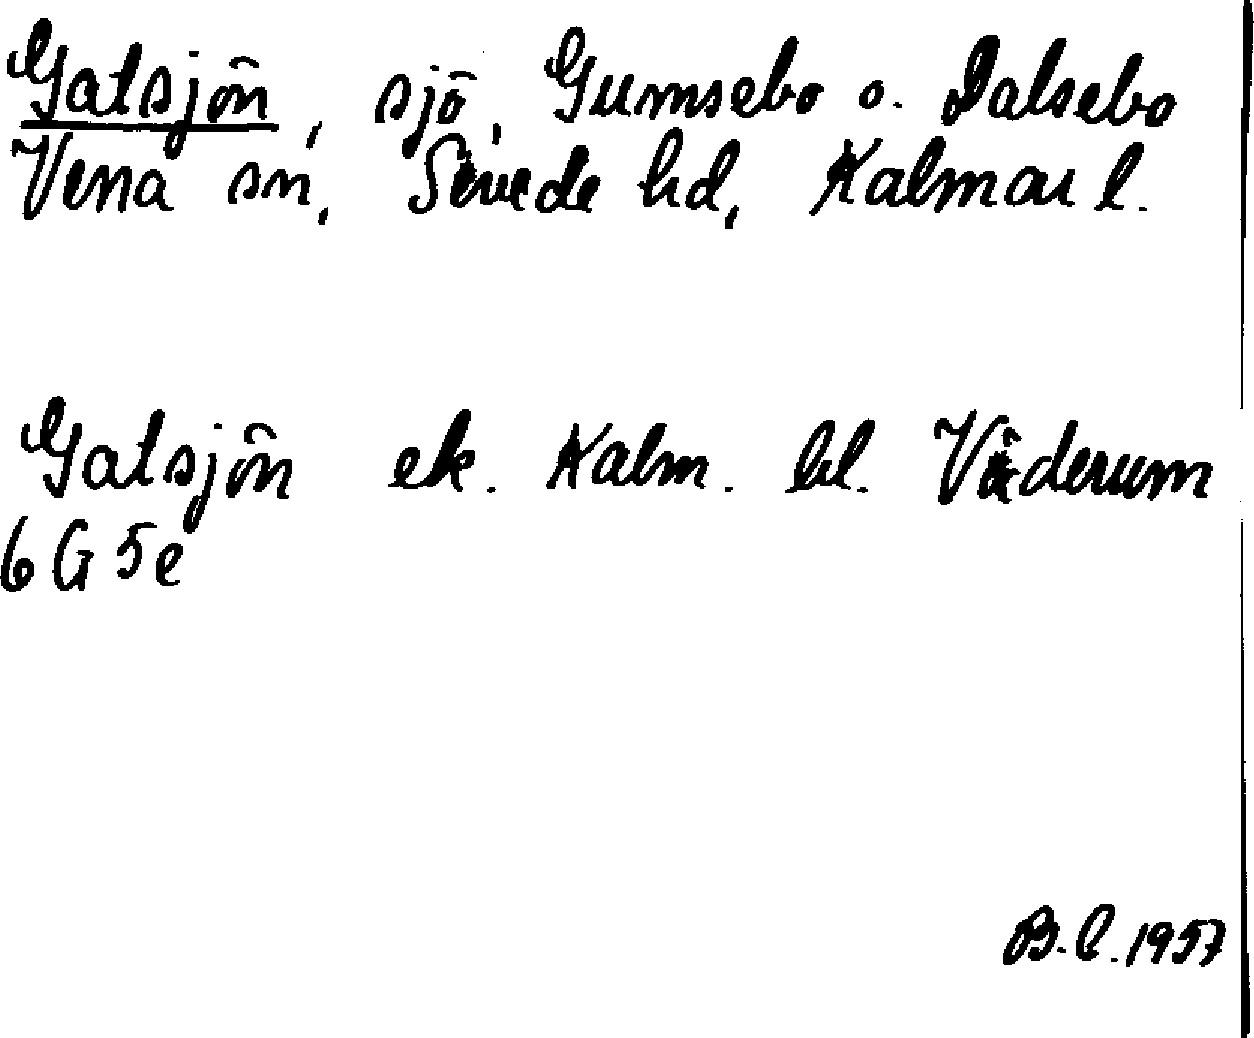 Gatsjön, sjö, Gumsebo o. Dalsebo
Vena sn, Sevede hd, Kalmar l.
Gatsjön ek. Kalm. bl. Väderum
6 G 5e
B.L. 1957